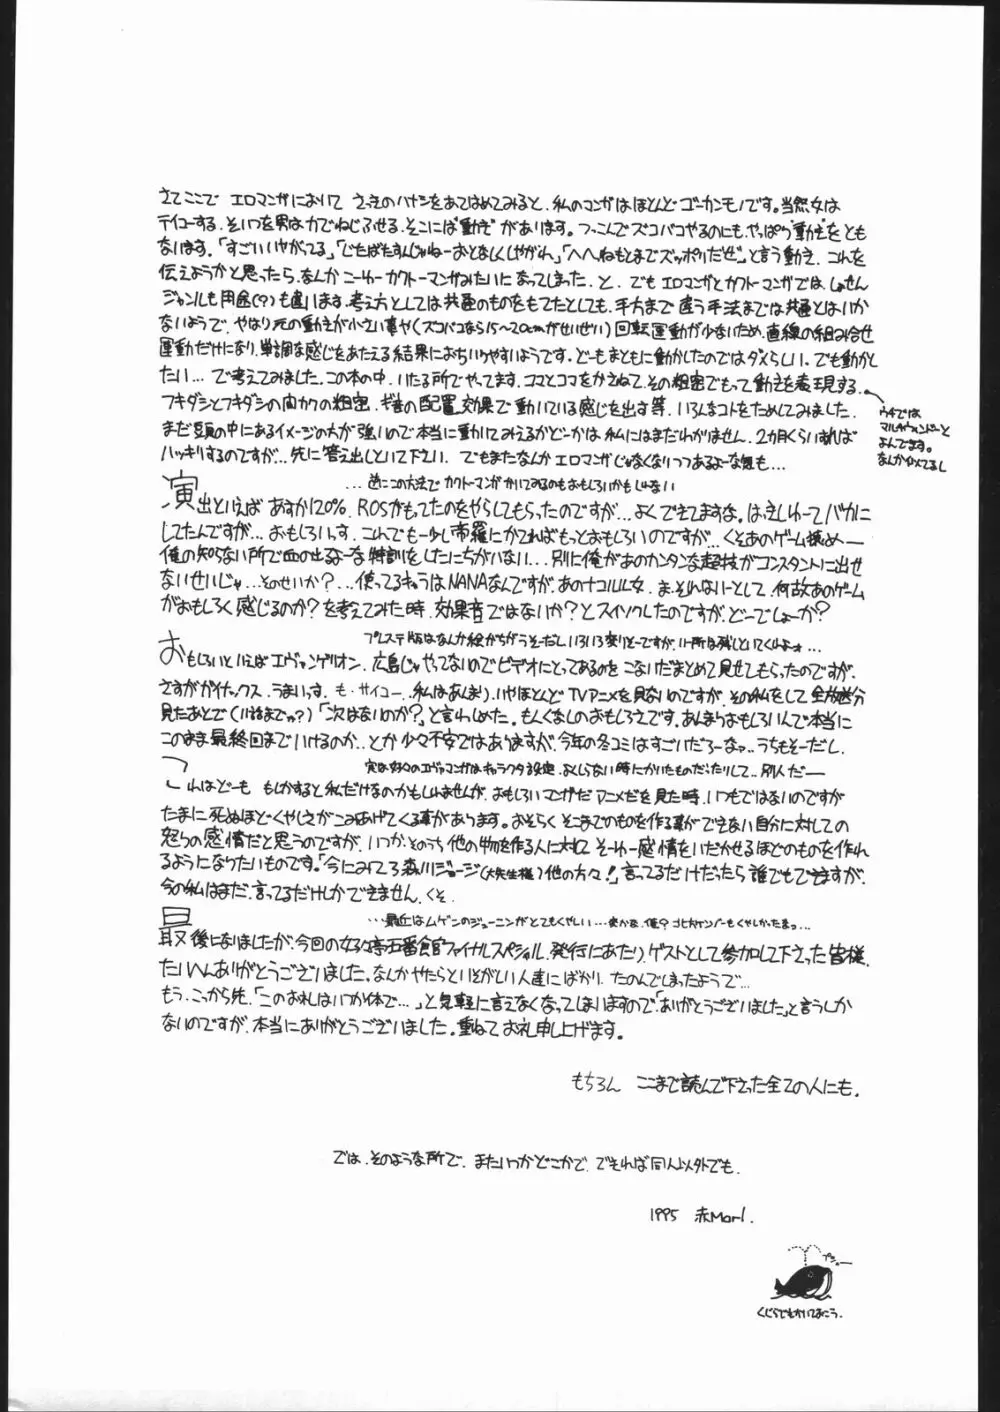 さてここで エロマンガにおいて さっきのハナシをあてはめてみると、私のマンガはほとんどゴーカンモノです。当然女は
テイコーする、そいつを男は力でねじふせる、そこには"動き"があります。つっこんでズコバコやるのにも、やっぱり"動き"をとも
ないます。「すごいいやがってる」「じたばたすんじゃねーおとなしくしやがれ」「へへねもとまでズッポリだぜ」と言う動き、これを
伝えようかと思ったら、なんか こーゆーカクトーマンガみたいになってしまった、と、でもエロマンガとカクトーマンガでは、しょせん
ジャンルも用途(?)も違います。考え方としては共通のものをもてたとしても、手方まで 違う手法までは共通とはいか
ないようで、やはり元の動きが小さい事や(ズコバコなら15〜20cmがせいぜい)回転運動が少ないため、直線の組み合せ
運動だけになり、単調な感じをあたえる結果におちいりやすいようです。どーもまともに動かしたのではダメらしい、でも動かし
たい… で考えてみました。この本の中、いたる所でやってます、コマとコマをかさねて、その粗密でもって動きを表現する、
フキダシとフキダシの向カクの粗密、擬音の配置、効果で動いている感じを出す等、いろんなコトをためしてみました、
ウチでは
マルチウィンドーと
よんでます。
なんか似てるし
まだ頭の中にあるイメージの方が強いので本当に動いてみえるかどーかは私にはまだわかりません、2カ月くらいすれば
ハッキリするのですが…先に答え出しといて下さい、でもまたなんかエロマンガじゃなくなりつつあるよーな気も…
…逆にこの方法でカクトーマンガかいてみるのもおもしろいかもしんない
演出といえば あすか120%、ROSがもってたのをやらしてもらったのですが…よくできてますな。はっきしゆーてバカに
してたんですが…おもしろいっす、これでもー少し帝羅にかてればもっとおもしろいのですが…くそあのゲーム猿め――
俺の知らない所で血の出るよーな特訓をしたにちがいない…別に俺があのカンタンな超技がコンスタントに出せ
ないせいじゃ…そのせいか?…使ってるキャラはNANAなんですが、あのナコルル女、ま、それはいーとして、何故あのゲーム
がおもしろく感じるのか?を考えてみた時、効果音ではないか?とスイソクしたのですが、どーでしょーか?
プレステ版はなんか絵がちがうそーだしいろいろ変りそーですが、いー所は残しといてくれよォ…
おもしろいといえばエヴァンゲリオン、広島じゃやってないのでビデオにとってあるのを こないだまとめて見せてもらったのですが、
さすがガイナックス、うまいっす、も、サイコー、私はあんまり、いやほとんどTVアニメを見ないのですが、その私をして全放送分
見たあとで(11話までかな?)「次はないのか?」と言わしめた。もんくなしのおもしろさです。あんまりおもしろいんで本当に
このまま最終回までいけるのか、とか少々不安ではありますが、今年の冬コミはすごいだろーなァ、うちもそーだし、
実は好々のエヴァマンガはキャラクタ設定、よくしらない時にかいたものだったりして…別人だ――
これはどーも もしかすると私だけなのかもしれませんが、おもしろいマンガだアニメだを見た時、いつもではないのですが
たまに死ぬほどくやしさがこみあげてくる事があります。おそらくそこまでのものを作る事ができない自分に対しての
怒りの感情だと思うのですが、いつか、そのうち他の物を作る人に対して そーゆー感情をいだかせるほどのものを作れ
るようになりたいものです。「今にみてろ森川ジョージ(大先生様)他の方々!」言ってるだけだったら誰でもできますが、
今の私はまだ、言ってるだけしかできません、くそ、
…最近はムゲンのジューニンがとてもくやしい…
最後になりましたが、今回の女々亭五番館ファイナルスペシャル、発行にあたり、ゲストとして参加して下さった皆様、
たいへんありがとうございました。なんかやたらといそがしい人達にばかり、たのんでしまったようで…
もう、こっから先、「このお礼はいつか体で…」と気軽に言えなくなってしまいますので「ありがとうございました」と言うしか
ないのですが、本当にありがとうございました。重ねてお礼申し上げます。
もちろん ここまで読んで下さった全ての人にも、
では、そのような所で、またいつかどこかで、できれば同人以外でも、
1995 赤Mar1.
プシュー
くじらでもかいておこう、